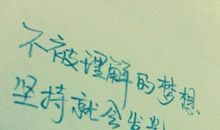 不被理解的梦想
坚持就会发光